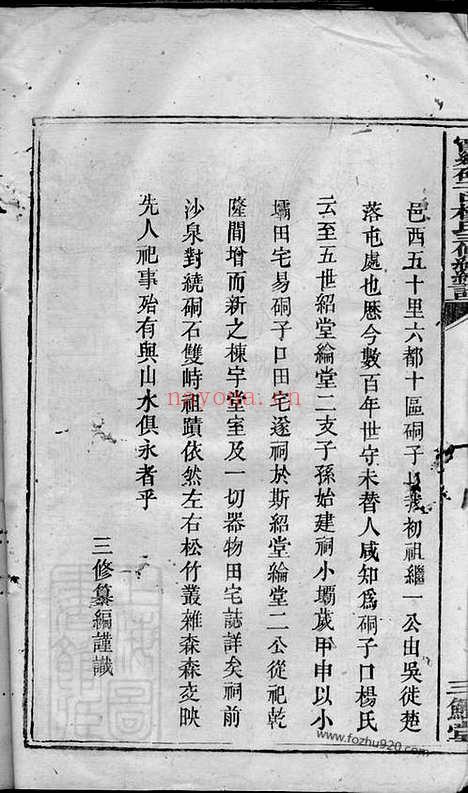 邑西五十里六都十區硐子口我初祖繼一公由吳徙楚
落屯處也厯今數百年世守未替人咸知爲硐子口楊氏
云至五世紹堂綸堂二支子孫始建祠小壩歲甲申以小
壩田宅易硐子口田宅遂祠於斯紹堂綸堂二公從祀乾
隆間增而新之棟宇堂室及一切器物田宅誌詳矣祠前
沙泉對繞硐石雙峙祖蹟依然左右松竹叢雜森森交映
先人祀事殆有與山水俱永者乎
三修纂編謹識
三鱣堂
nayona.cn
www.fozhu920.com